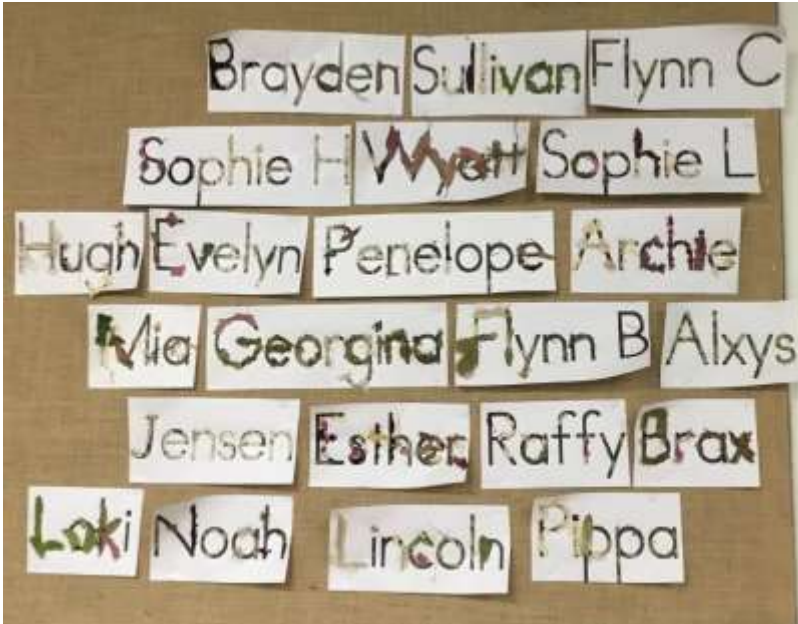 Brayden Sullivan Flynn C
Sophie H Wyatt Sophie L
Hugh Evelyn Penelope Archie
Mia Georgina Flynn B Alxys
Jensen Esther Raffy Brax
Loki Noah Lincoln Pippa